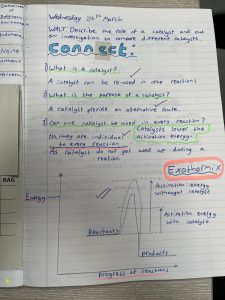 Wednesday 26th March
WALT: Describe the role of a catalyst and out
an investigation to compare different catalysts.
Connect:
1) What is a catalyst?
A catalyst can be re-used in other reactions
2) What is the purpose of a catalyst?
A catalyst provide an alternative route.
3) Can one catalyst be used in every reaction?
No, they are individual
to every reaction
Catalysts lower the
activation energy.
As catalyst do not get used up during a
reaction.
Exothermix
Activation energy
without catalyst
Energy
Activation energy
with catalyst
Reactants
products
Progress of reactions
None
BAG